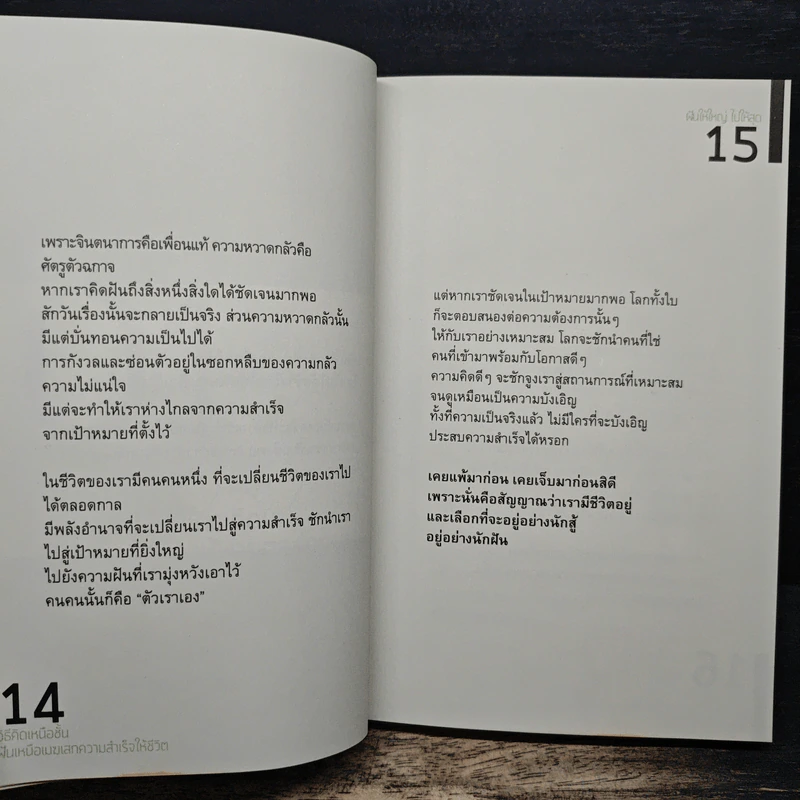 เพราะจินตนาการคือเพื่อนแท้ ความหวาดกลัวคือ
ศัตรูตัวฉกาจ
หากเราคิดฝันถึงสิ่งหนึ่งสิ่งใดได้ชัดเจนมากพอ
สักวันเรื่องนั้นจะกลายเป็นจริง ส่วนความหวาดกลัวนั้น
มีแต่บั่นทอนความเป็นไปได้
การกังวลและซ่อนตัวอยู่ในซอกหลืบของความกลัว
ความไม่แน่ใจ
มีแต่จะทำให้เราห่างไกลจากความสำเร็จ
จากเป้าหมายที่ตั้งไว้
ในชีวิตของเรามีคนคนหนึ่ง ที่จะเปลี่ยนชีวิตของเราไป
ได้ตลอดกาล
มีพลังอำนาจที่จะเปลี่ยนเราไปสู่ความสำเร็จ ชักนำเรา
ไปสู่เป้าหมายที่ยิ่งใหญ่
ไปยังความฝันที่เรามุ่งหวังเอาไว้
คนคนนั้นก็คือ “ตัวเราเอง”
14
วิธีคิดเหนือชั้น
ฝันเหนือเมฆเสกความสำเร็จให้ชีวิต
ฝันให้ใหญ่ ไปให้สุด
15
แต่หากเราชัดเจนในเป้าหมายมากพอ โลกทั้งใบ
ก็จะตอบสนองต่อความต้องการนั้นๆ
ให้กับเราอย่างเหมาะสม โลกจะชักนำคนที่ใช่
คนที่เข้ามาพร้อมกับโอกาสดีๆ
ความคิดดีๆ จะชักจูงเราสู่สถานการณ์ที่เหมาะสม
จนดูเหมือนเป็นความบังเอิญ
ทั้งที่ความเป็นจริงแล้ว ไม่มีใครที่จะบังเอิญ
ประสบความสำเร็จได้หรอก
เคยแพ้มาก่อน เคยเจ็บมาก่อนสิดี
เพราะนั่นคือสัญญาณว่าเรามีชีวิตอยู่
และเลือกที่จะอยู่อย่างนักสู้
อยู่อย่างนักฝัน